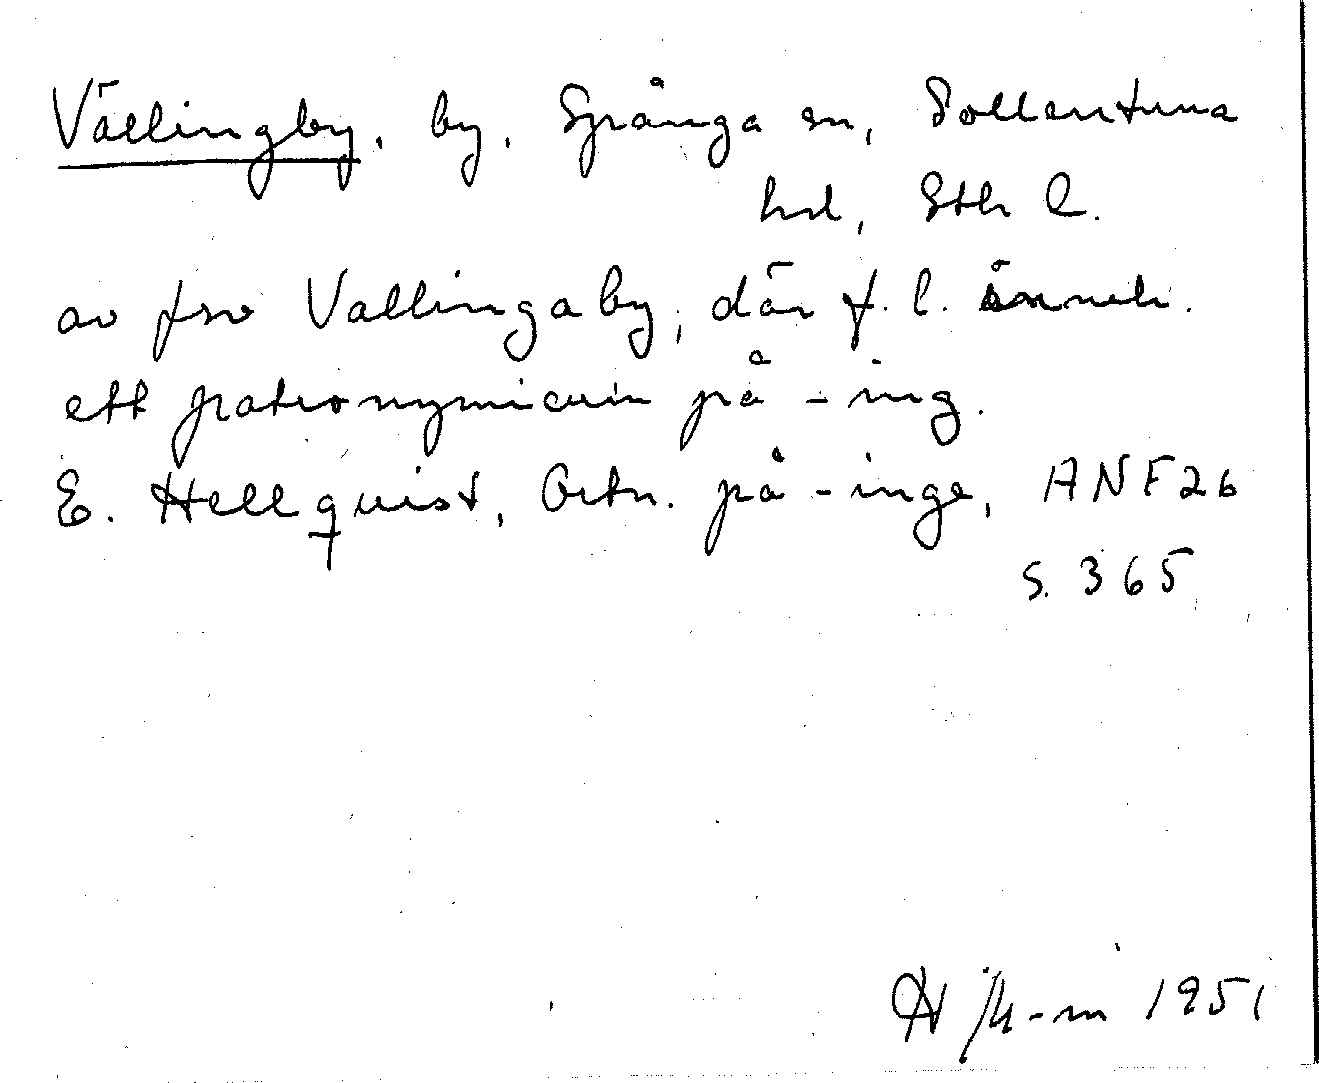 Vällingby, by, Spånga sn, Sollentuna
hd, Sthl l.
av fsv Vallingaby, där f. l. inneh.
ett patronymicum på -ing.
E. Hellquist, Ortn. på -inge, ANF 26
S. 365
1951